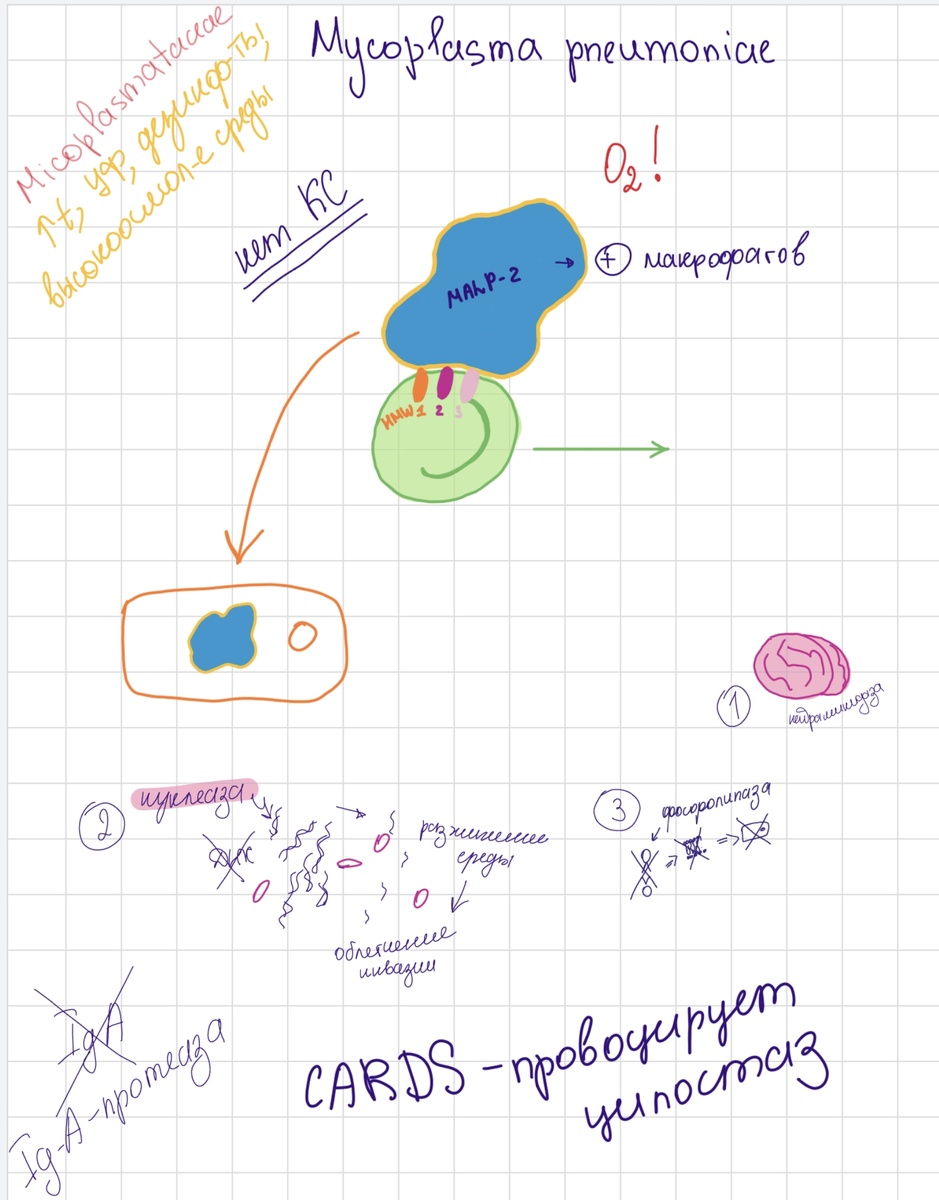 Micoplasmataceae
↑t, уф, дезинф-ты,
высокоосмол-е среды
Mycoplasma pneumoniae
O₂!
нет КС
MALP-2
→ ⊕ макрофагов
HMW 1 2 3
1
нейраминидаза
2 нуклеаза
ДНК
разжижение
среды
облегчение
инвазии
3 фосфолипаза
IgA
Ig-A-протеаза
CARDS - провоцирует
цилостаз